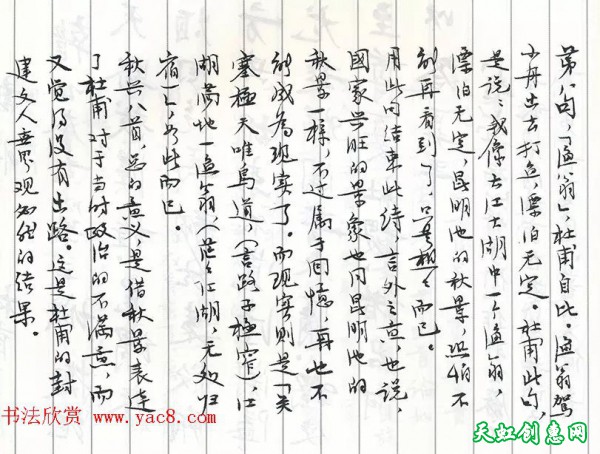 第八句，「渔翁」，杜甫自比。渔翁驾
小舟出去打鱼，漂泊无定。杜甫此句，
是说：我像大江大湖中一个渔翁，
漂泊无定，昆明池的秋景，恐怕不
能再看到了，只是想想而已。
用此句结束此诗，言外之意，也说，
国家兴旺的景象也同昆明池的
秋景一样，不过属于回忆，再也不
能成为现实了。而现实则是「关
塞极天唯鸟道，（言路子极窄），江
湖满地一渔翁，（茫茫江湖，无处归
宿）」，如此而已。
秋兴八首，总的意义，是借秋景表达
了杜甫对于当时政治的不满意，而
又觉得没有出路。这是杜甫的封
建文人世界观必然的结果。
书法欣赏 www.yac8.com
天虹创意网